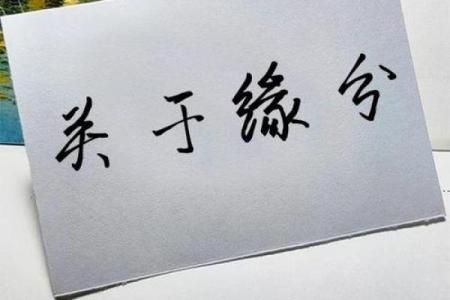 关于缘分